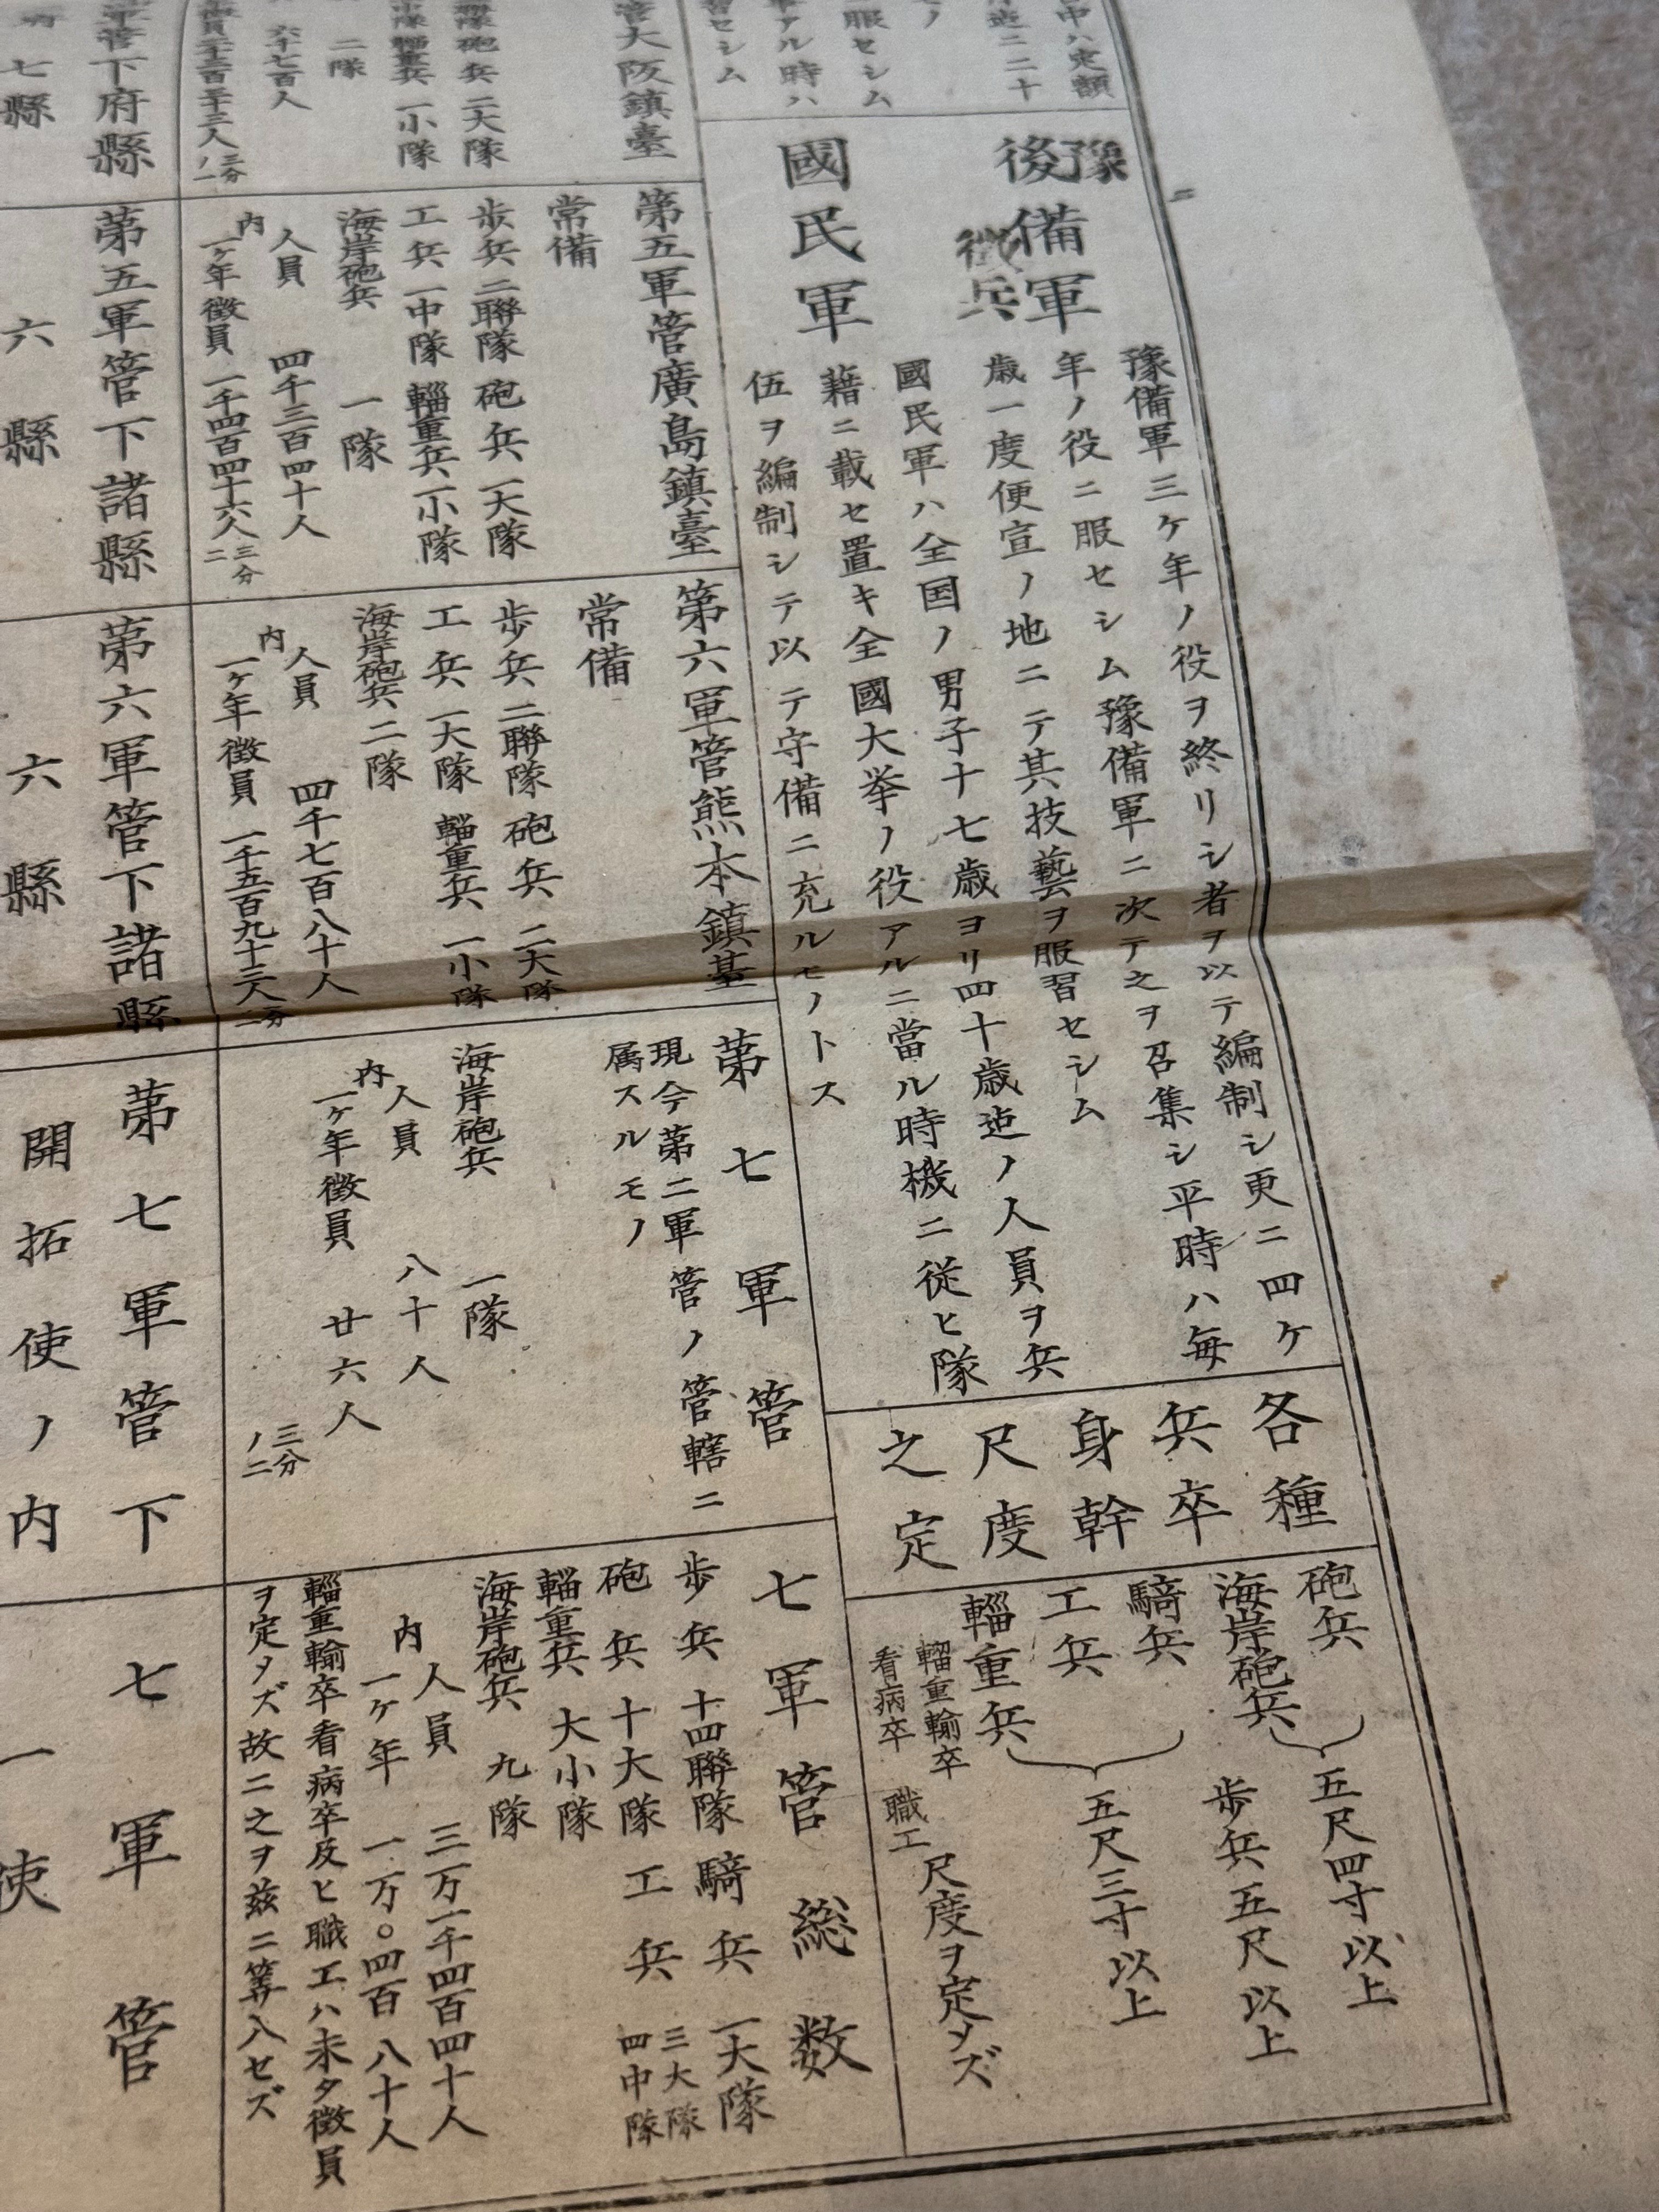 豫
後備軍
徴兵
豫備軍三ケ年ノ役ヲ終リシ者ヲ以テ編制シ更ニ四ケ
年ノ役ニ服セシム豫備軍ニ次テ之ヲ召集シ平時ハ毎
歳一度便宣ノ地ニテ其技藝ヲ服習セシム
國民軍
國民軍ハ全国ノ男子十七歳ヨリ四十歳迠ノ人員ヲ兵
藉ニ載セ置キ全國大挙ノ役アルニ當ル時機ニ従ヒ隊
伍ヲ編制シテ以テ守備ニ充ルモノトス
各種
兵卒
身幹
尺度
之定
砲兵
海岸砲兵
五尺四寸以上
歩兵五尺以上
騎兵
工兵
輜重兵
五尺三寸以上
輜重輸卒
看病卒
職工
尺度ヲ定メズ
管大阪鎮臺
砲兵二大隊
輜重兵一小隊
二隊
六千七百人
三分
ノ一
第五軍管廣島鎮臺
常備
歩兵二聯隊砲兵一大隊
工兵一中隊輜重兵一小隊
海岸砲兵一隊
人員四千三百四十人
内
一ケ年徴員一千四百四十六人
三分
二
第六軍管熊本鎮臺
常備
歩兵二聯隊砲兵二大隊
工兵一大隊輜重兵一小隊
海岸砲兵二隊
人員四千七百八十人
内
一ケ年徴員一千五百九十三人
第七軍管
現今第二軍管ノ管轄ニ
属スルモノ
海岸砲兵一隊
人員八十人
内
一ケ年徴員廿六人
三分
ノ二
七軍管総数
歩兵十四聯隊騎兵一大隊
砲兵十大隊工兵
三大隊
四中隊
輜重兵大小隊
海岸砲兵九隊
人員三万一千四百四十人
内
一ケ年一万〇四百八十人
輜重輸卒看病卒及ヒ職工ハ未タ徴員
ヲ定メズ故ニ之ヲ茲ニ筭入セズ
管下府縣
七縣
第五軍管下諸縣
六縣
第六軍管下諸縣
六縣
第七軍管下
開拓使ノ内
七軍管
一使